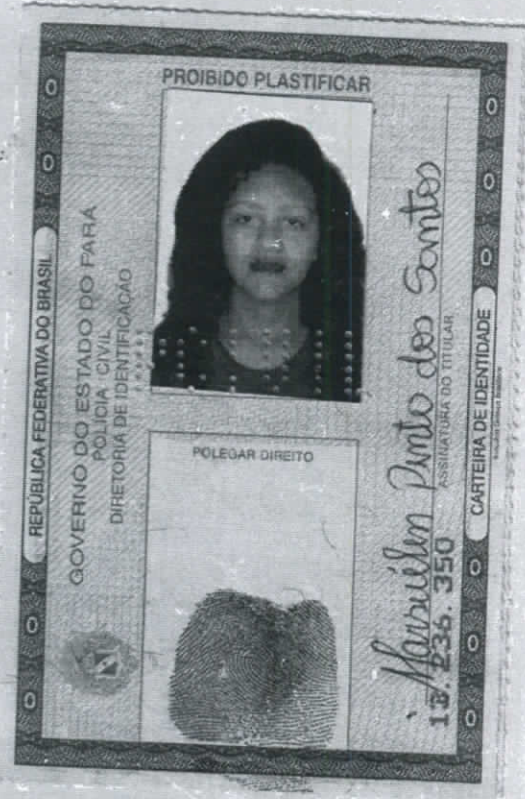 PROIBIDO PLASTIFICAR
REPÚBLICA FEDERATIVA DO BRASIL
GOVERNO DO ESTADO DO PARÁ
POLICIA CIVIL
DIRETORIA DE IDENTIFICAÇÃO
POLEGAR DIREITO
Pinto dos Santos
13.236.350
ASSINATURA DO TITULAR
CARTEIRA DE IDENTIDADE